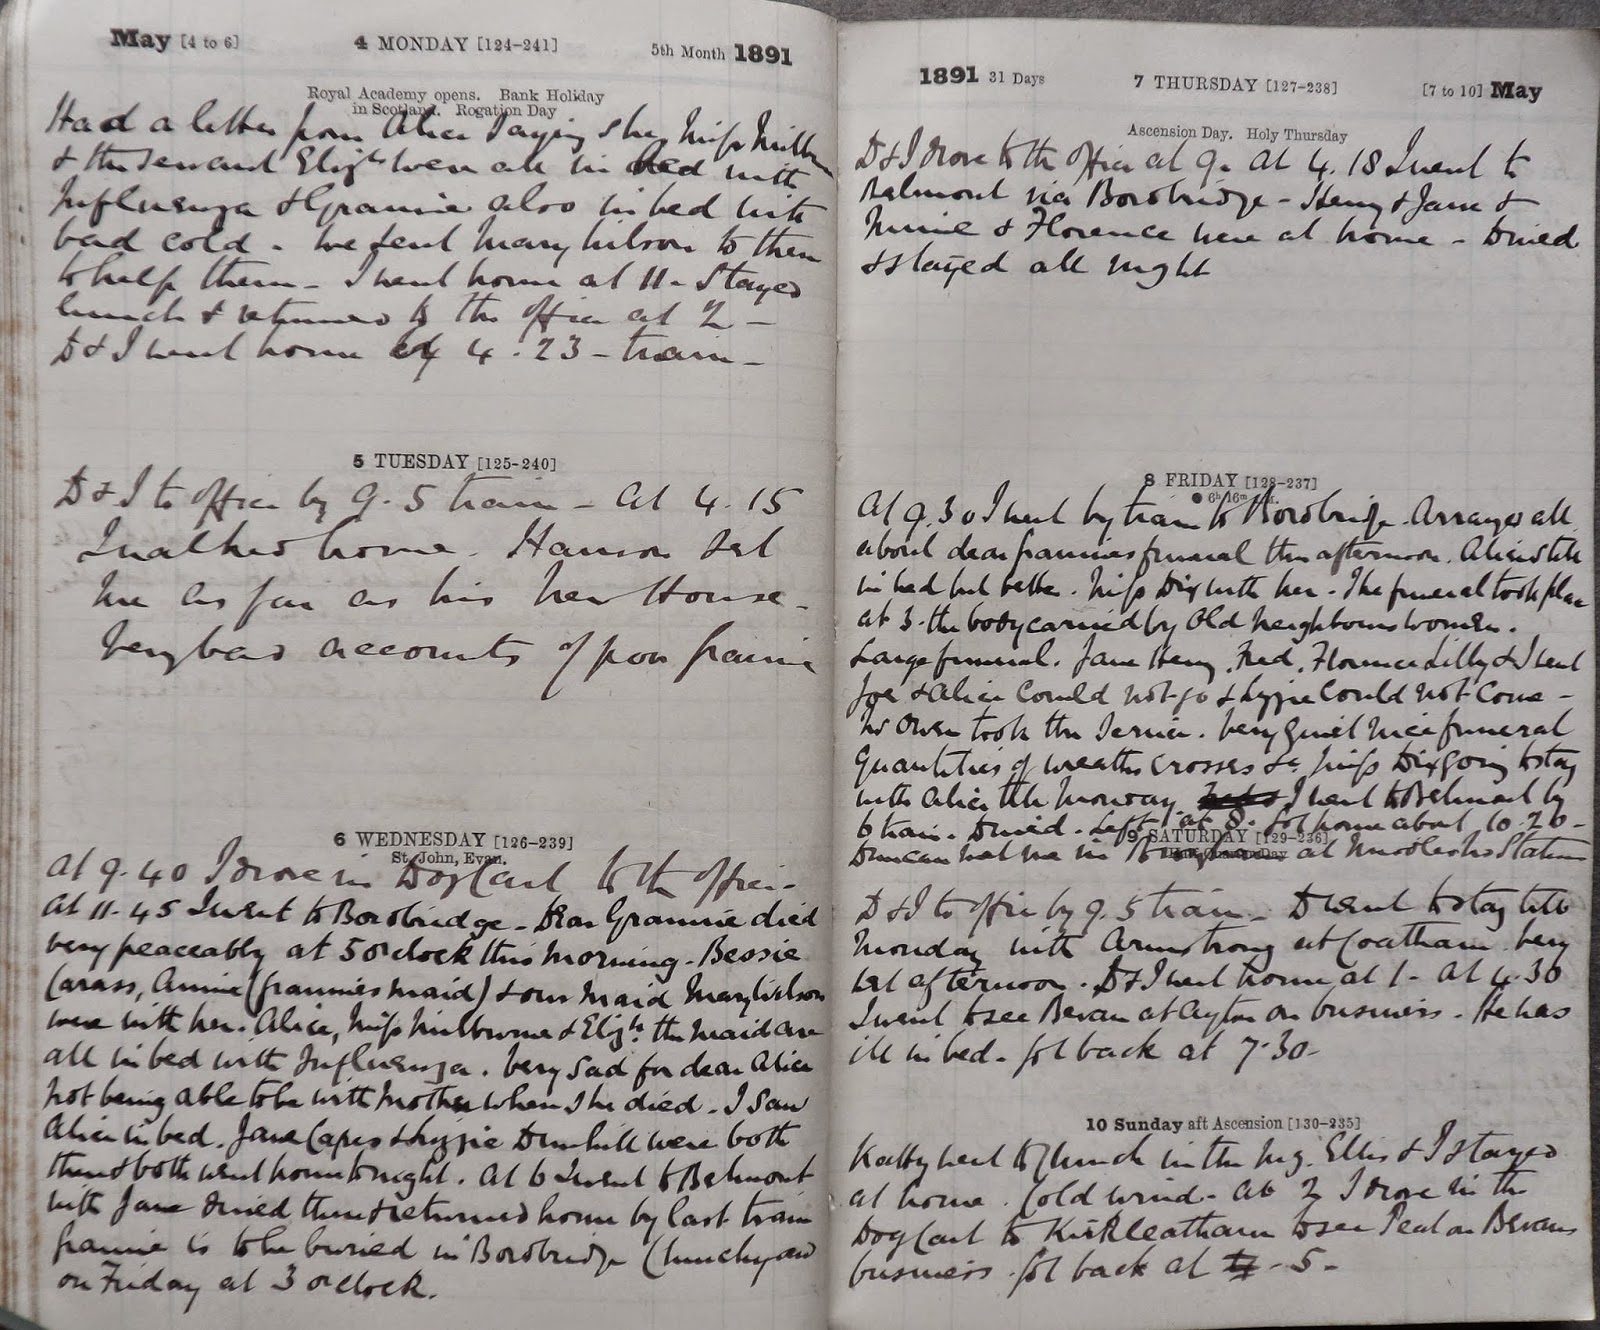 May [4 to 6] 4 MONDAY [124-241] 5th Month 1891
Royal Academy opens. Bank Holiday
in Scotland. Rogation Day
Had a letter from Alice saying she, Miss Milburn
& the servant Elizth were all in bed with
Influenza & Grannie also in bed with
bad cold - We sent Mary Wilson to them
to help them - I went home at 11 - Stayed
lunch & returned to the office at 2 -
D & I went home by 4.23 - train -
5 TUESDAY [125-240]
D & I to office by 9.5 train - At 4.15
I walked home. Hanson set
me as far as his new House -
Very bad accounts of poor Grannie
6 WEDNESDAY [126-239]
St. John, Evan.
At 9.40 I drove in Dog Cart to the office -
At 11.45 I went to Borobridge - Dear Grannie died
very peaceably at 5 o'clock this morning - Bessie
Carass, Annie (Grannies maid) & our maid Mary Wilson
were with her. Alice, Miss Milbourne & Elizth the maid are
all in bed with Influenza. Very sad for dear Alice
not being able to be with Mother when she died - I saw
Alice in bed. Jane Capes & Lizzie Dunhill were both
there & both went home tonight. At 6 I went to Belmont
with Jane dined there & returned home by last train
Grannie is to be buried in Borobridge Churchyard
on Friday at 3 o'clock.
1891 31 Days 7 THURSDAY [127-238] [7 to 10] May
Ascension Day. Holy Thursday
D & I drove to the office at 9. At 4.18 I went to
Belmont via Borobridge - Henry & Jane &
Minnie & Florence were at home - Dined
& stayed all night
8 FRIDAY [128-237]
6h 16m
At 9.30 I went by train to Borobridge. Arranged all
about dear Grannies funeral this afternoon. Alice still
in bed but better. Miss Dix with her - The funeral took place
at 3 - the body carried by Old neighbours women.
Large funeral. Jane Henry, Fred, Florence Lilly & I went
Joe & Alice could not go & Lizzie could not come -
Mr Owen took the Service. Very quiet nice funeral
Quantities of wreaths crosses &c Miss Dix going to stay
with Alice till Monday. I went to Belmont by
6 train - Dined - Left at 8 - Got home about 10.20 -
Duncan met me in at Middlesbro Station
9 SATURDAY [129-236]
D & I to office by 9.5 train - D went to stay till
Monday with Armstrong at Coatham. Very
wet afternoon - D & I went home at 1 - At 4.30
I went to see Bevan at Ayton on business - He was
ill in bed - Got back at 7.30 -
10 Sunday aft Ascension [130-235]
Katty went to Church in the Mg. Ellis & I stayed
at home. Cold wind - At 2 I drove in the
Dog Cart to Kirkleatham to see Peat on Bevans
business. Got back at 5 -